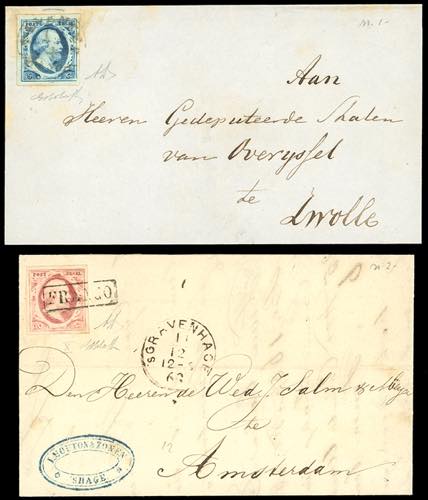 POST ZEGEL
n. 1-
Aan
Heeren Gedeputeerde Staten
van Overyssel
te
Zwolle
POST ZEGEL
FRANCO
n. 2-
SGRAVENHAGE
11
12
12-
Den Heeren de Wed J. Salm &
te
Amsterdam
12
MOUTON & ZONEN
SHAGE